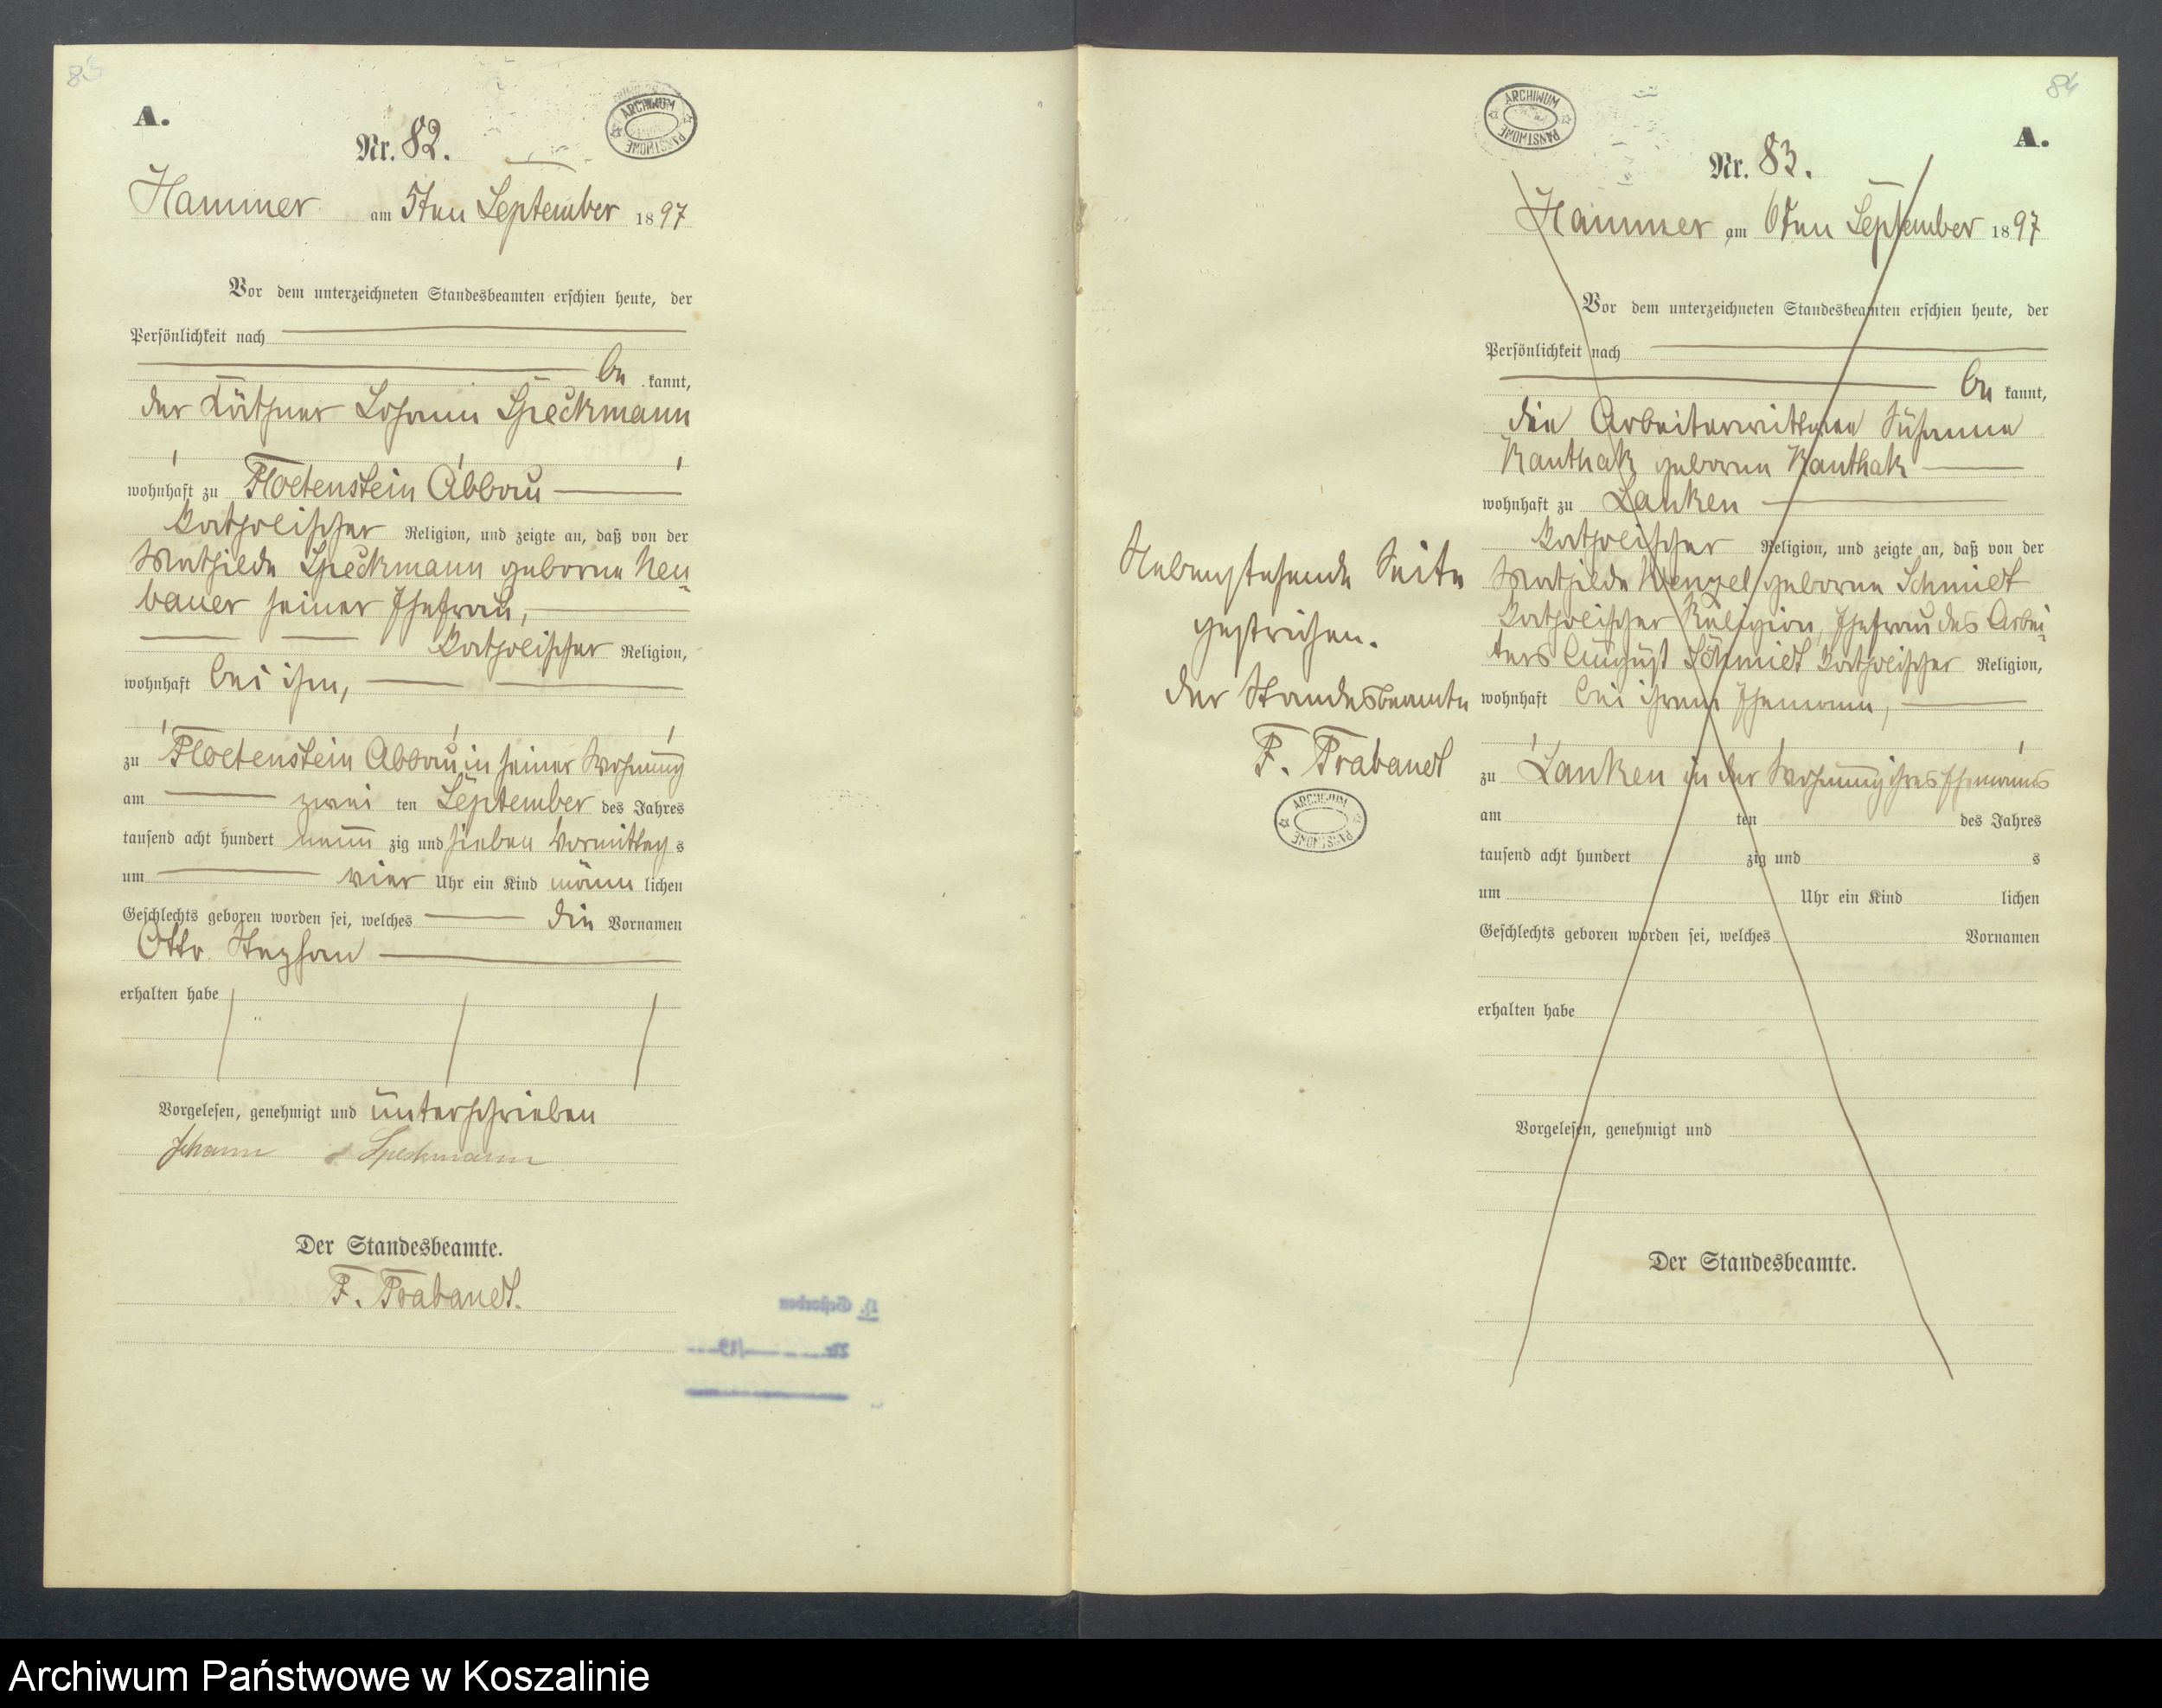 83
A.
ARCHIWUM PAŃSTWOWE
Nr. 82.
Hammer am 5ten September 1897
Vor dem unterzeichneten Standesbeamten erschien heute, der
Persönlichkeit nach
be kannt,
der Käthner Johann Speckmann
wohnhaft zu Floetenstein Abbau
katholischer Religion, und zeigte an, daß von der
Mathilde Speckmann geborne Neu
bauer seiner Ehefrau,
katholischer Religion,
wohnhaft bei ihm,
zu Floetenstein Abbau in seiner Wohnung
am zwei ten September des Jahres
tausend acht hundert neun zig und sieben Vormittag s
um vier Uhr ein Kind männ lichen
Geschlechts geboren worden sei, welches die Vornamen
Otto Stephan
erhalten habe
Vorgelesen, genehmigt und unterschrieben
Johann Speckmann
Der Standesbeamte.
F. Trabandt.
H. Gestorben
Nr. /19
84
ARCHIWUM PAŃSTWOWE
A.
Nr. 83.
Hammer am 6ten September 1897
Vor dem unterzeichneten Standesbeamten erschien heute, der
Persönlichkeit nach
be kannt,
die Arbeiterwittwe Susanne
Kanthak geborne Kanthak
wohnhaft zu Lanken
katholischer Religion, und zeigte an, daß von der
Mathilde Wenzel geborne Schmidt
katholischer Religion, Ehefrau des Arbei
ters August Schmidt katholischer Religion,
wohnhaft bei ihrem Ehemann,
zu Lanken in der Wohnung ihres Ehemanns
am ten des Jahres
tausend acht hundert zig und s
um Uhr ein Kind lichen
Geschlechts geboren worden sei, welches Vornamen
erhalten habe
Vorgelesen, genehmigt und
Der Standesbeamte.
Nebenstehende Seite
gestrichen.
Der Standesbeamte
F. Trabandt
ARCHIWUM PAŃSTWOWE
Archiwum Państwowe w Koszalinie